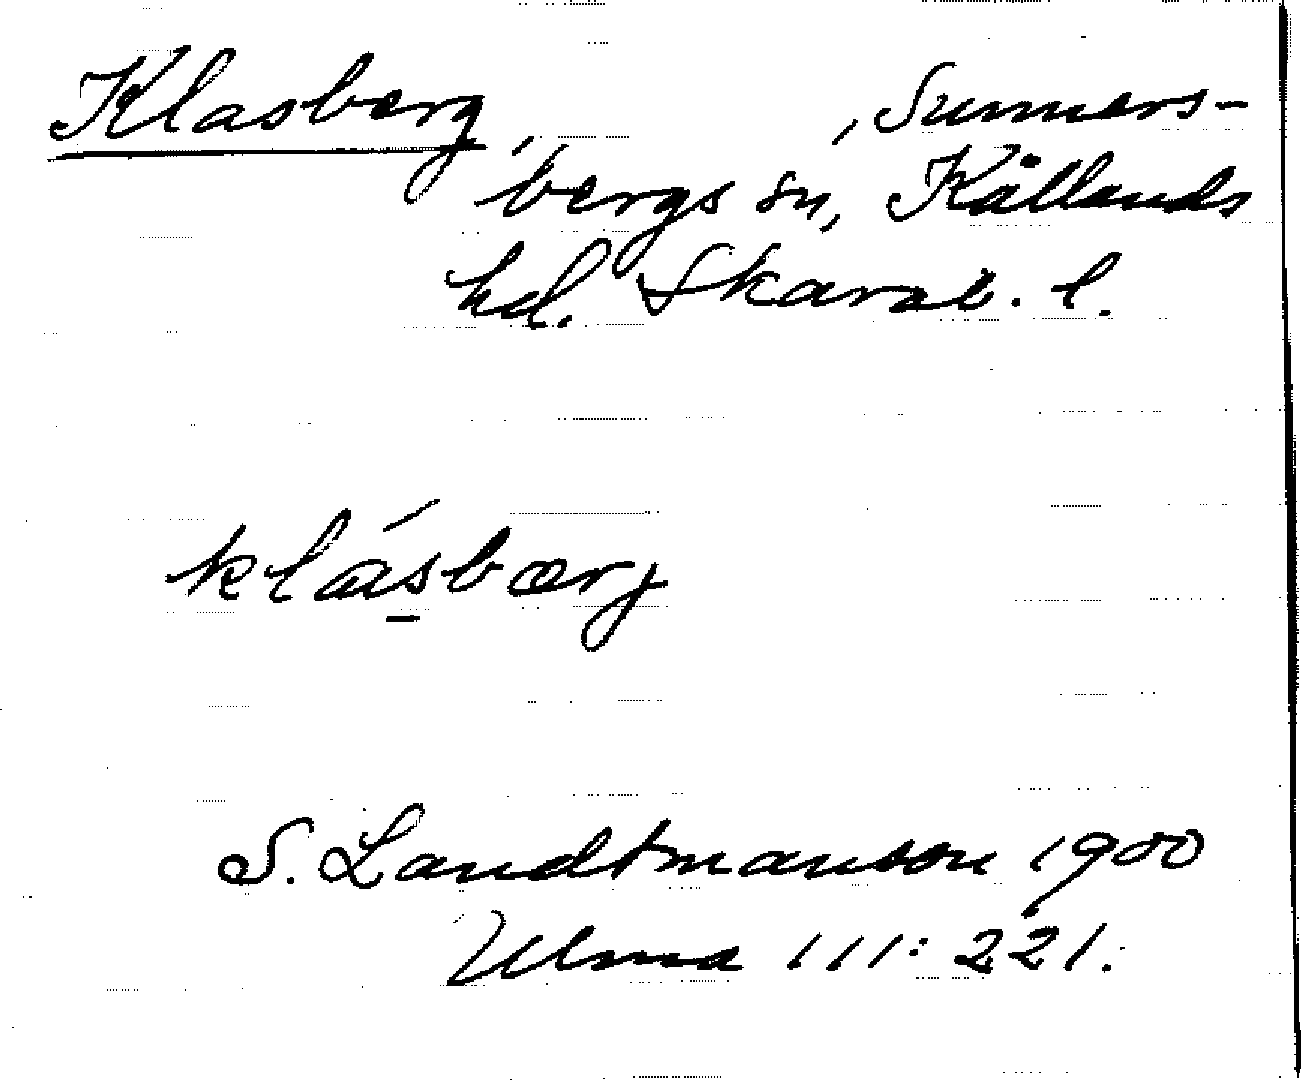 Klasberg, , Sunners-
bergs sn, Kållands
hd. Skarab. l.
klásbærj
S. Landtmanson 1900
Ulma 111:221.